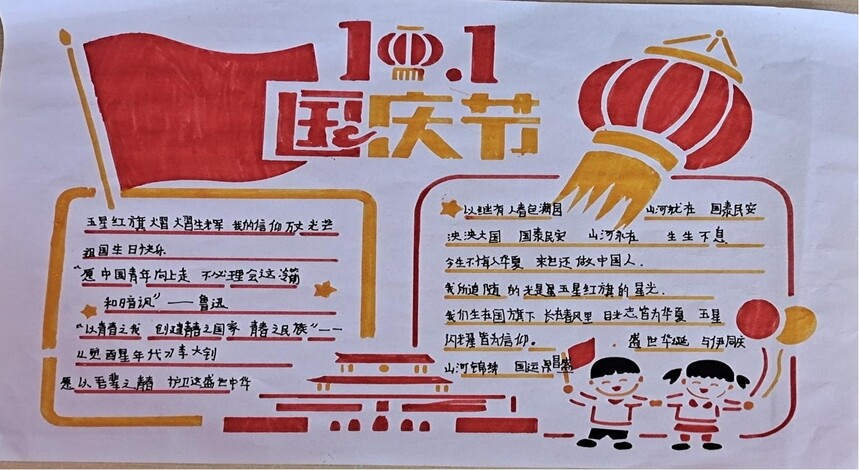 10.1
国庆节
五星红旗熠熠生辉 我的信仰万丈光芒
祖国生日快乐
“愿中国青年向上走 不必理会这冷箭
和暗讽”——鲁迅
“以青春之我 创建青春之国家 青春之民族”——
《觉醒年代》李大钊
愿以吾辈之青春 护卫这盛世中华
山河犹在 国泰民安
泱泱大国 国泰民安 山河永在 生生不息
今生不悔入华夏 来世还做中国人.
我所追随的光是五星红旗的星光.
我们生在国旗下 长在春风里 目光 皆为华夏 五星
闪耀皆为信仰。 盛世华诞 与伊同庆
山河锦绣 国运昌盛